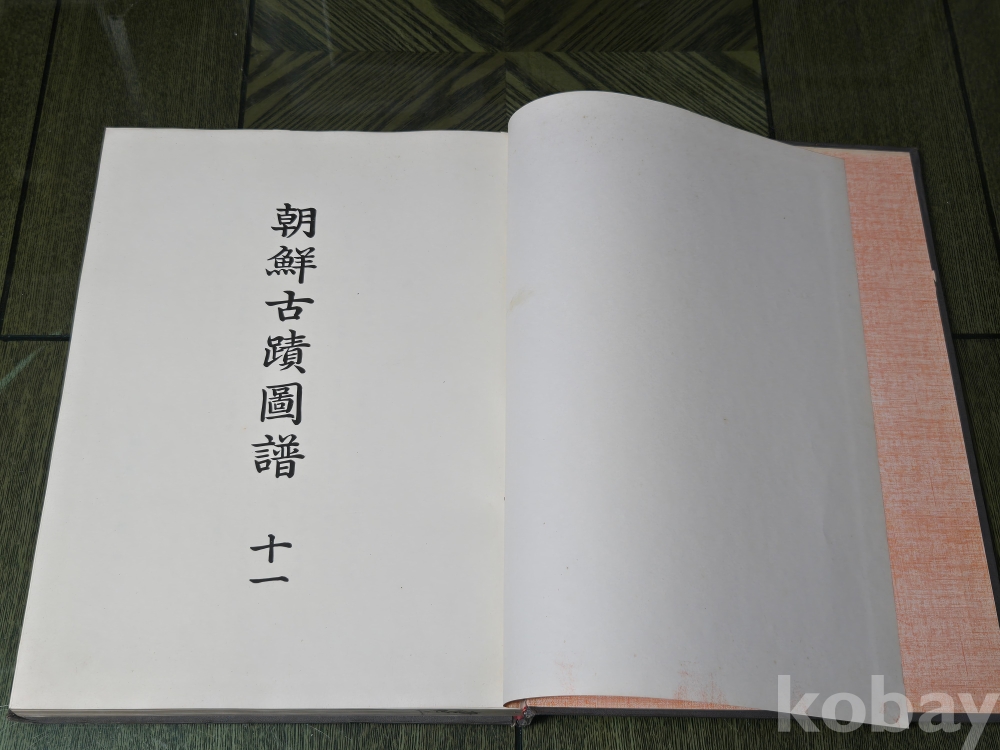 朝鮮古蹟圖譜
十一
kobay